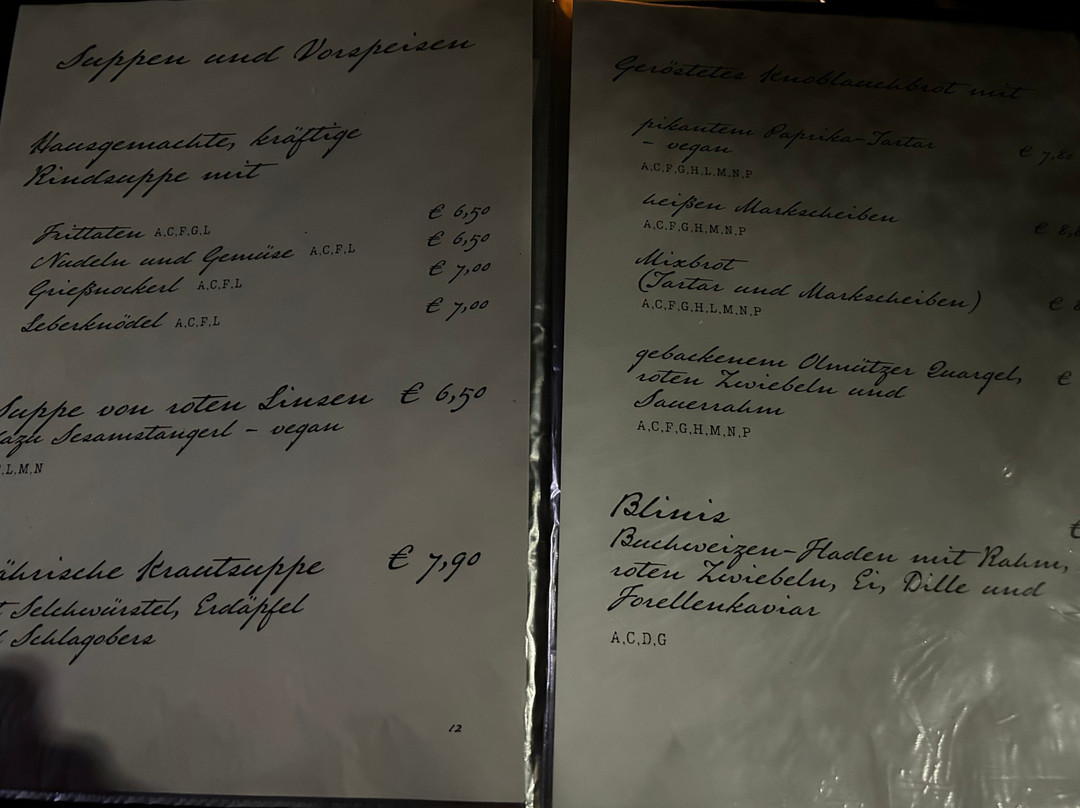 Suppen und Vorspeisen
Hausgemachte, kräftige
Rindsuppe mit
Frittaten A,C,F,G,L € 6,50
Nudeln und Gemüse A,C,F,L € 6,50
Grießnockerl A,C,F,L € 7,00
Leberknödel A,C,F,L € 7,00
Suppe von roten Linsen € 6,50
dazu Sesamstangerl – vegan
,L,M,N
ährische Krautsuppe € 7,90
t Selchwürstel, Erdäpfel
Schlagobers
12
Geröstetes Knoblauchbrot mit
pikantem Paprika-Tartar € 7,80
- vegan
A,C,F,G,H,L,M,N,P
heißen Markscheiben € 8,
A,C,F,G,H,M,N,P
Mixbrot
(Tartar und Markscheiben) €
A,C,F,G,H,L,M,N,P
gebackenem Olmützer Quargel, €
roten Zwiebeln und
Sauerrahm
A,C,F,G,H,M,N,P
Blinis €
Buchweizen-Fladen mit Rahm,
roten Zwiebeln, Ei, Dille und
Forellenkaviar
A,C,D,G